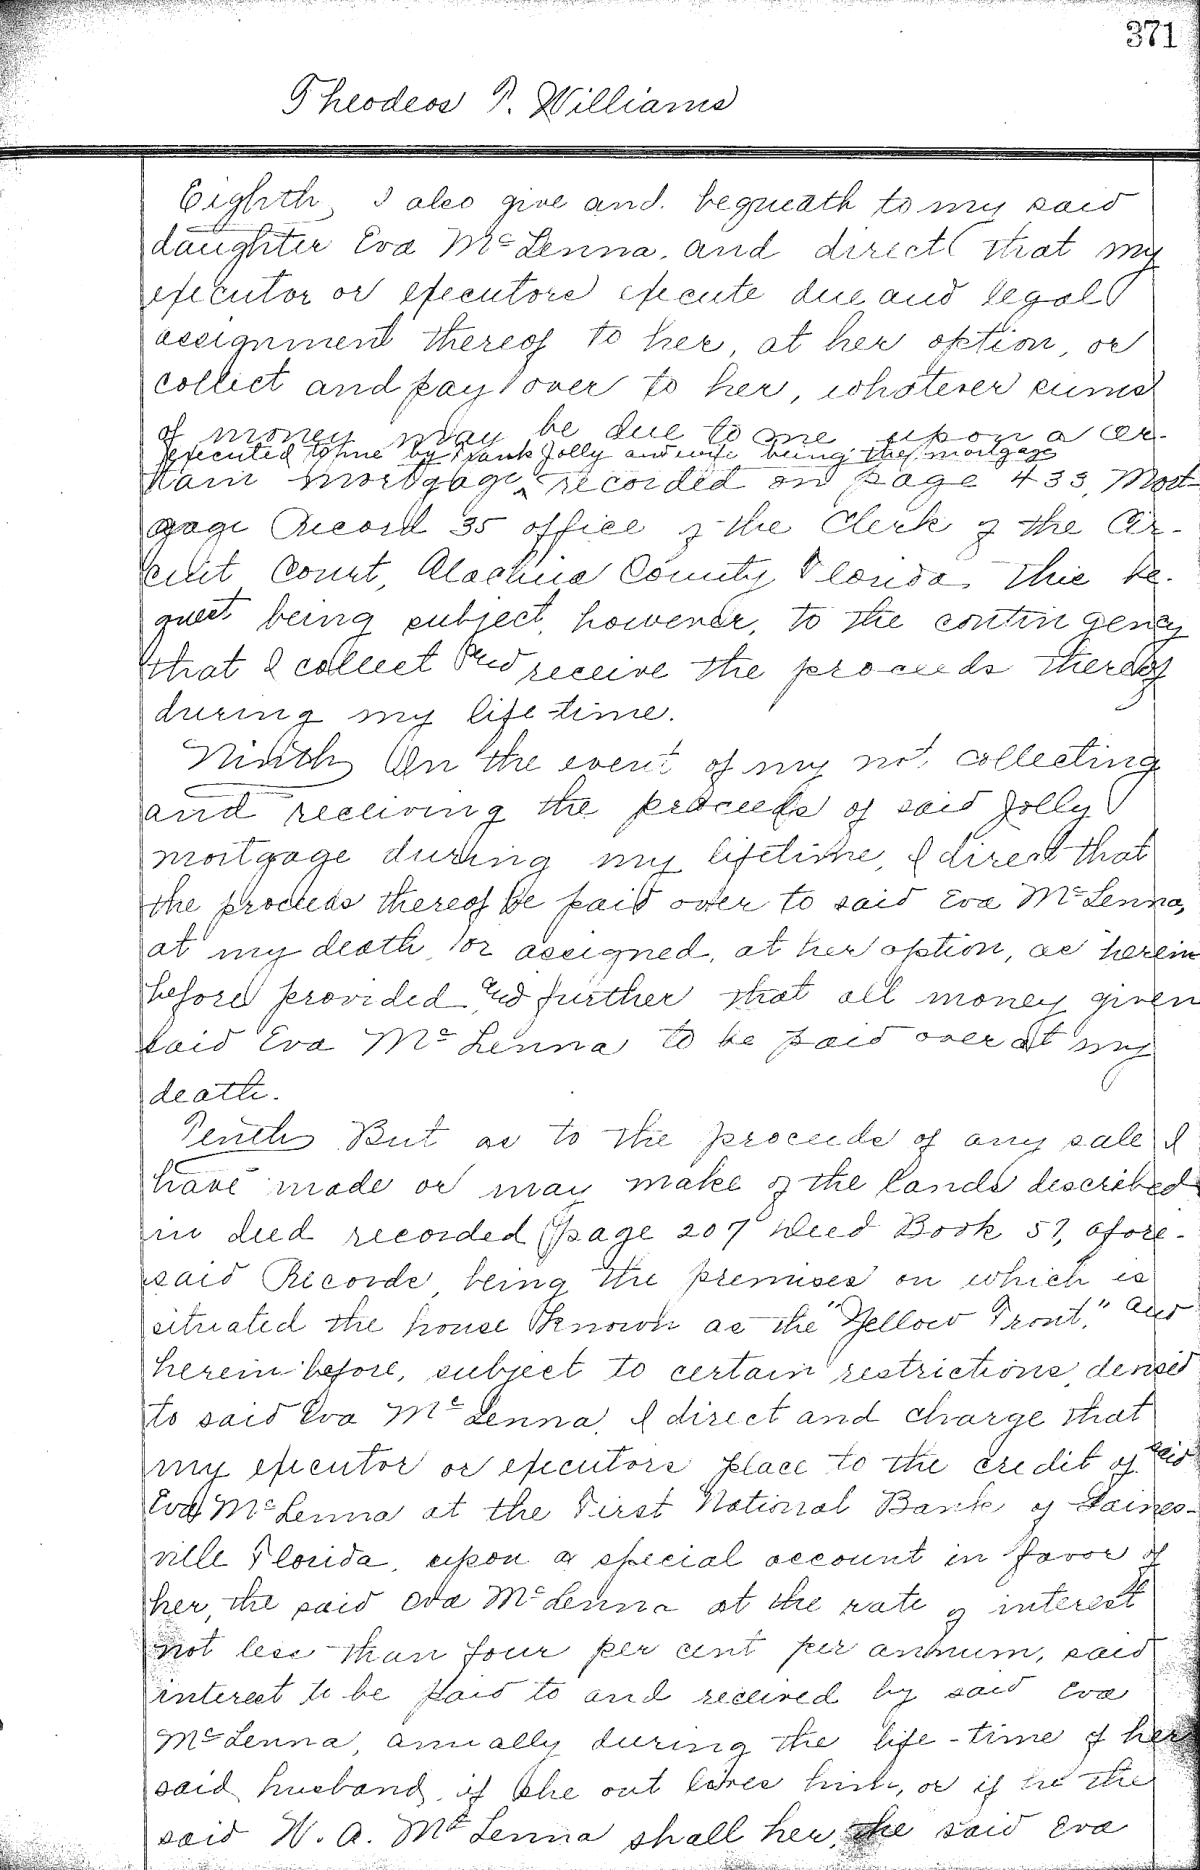 371
Theodeos P. Williams
Eighth, I also give and bequeath to my said
daughter Eva McLenna, and direct that my
executor or executors execute due and legal
assignment thereof to her, at her option, or
collect and pay over to her, whatever sums
of money may be due to me upon a cer-
executed to me by Frank Jolly and wife being the mortgage
tain mortgage, ^ recorded on page 433, Mort-
gage Record 35 office of the Clerk of the Cir-
cuit Court, Alachua County Florida, this be-
quest being subject, however, to the contingency
that I collect and receive the proceeds thereof
during my life-time.
Ninth In the event of my not collecting
and receiving the proceeds of said Jolly
mortgage during my lifetime, I direct that
the proceeds thereof be paid over to said Eva McLenna,
at my death, or assigned, at her option, as herein
before provided, and further that all money given
said Eva McLenna to be paid over at my
death.
Tenth But as to the proceeds of any sale I
have made or may make of the lands described
in deed recorded page 207 Deed Book 57, afore-
said Records, being the premises on which is
situated the house known as the "Yellow Front," and
herein-before, subject to certain restrictions, devised
to said Eva McLenna, I direct and charge that
my executor or executors place to the credit of said
Eva McLenna at the First National Bank of Gaines-
ville Florida, upon a special account in favor of
her, the said Eva McLenna at the rate of interest
not less than four per cent per annum, said
interest to be paid to and received by said Eva
McLenna, annually during the life-time of her
said husband, if she out lives him, or if he the
said W. A. McLenna shall her, the said Eva